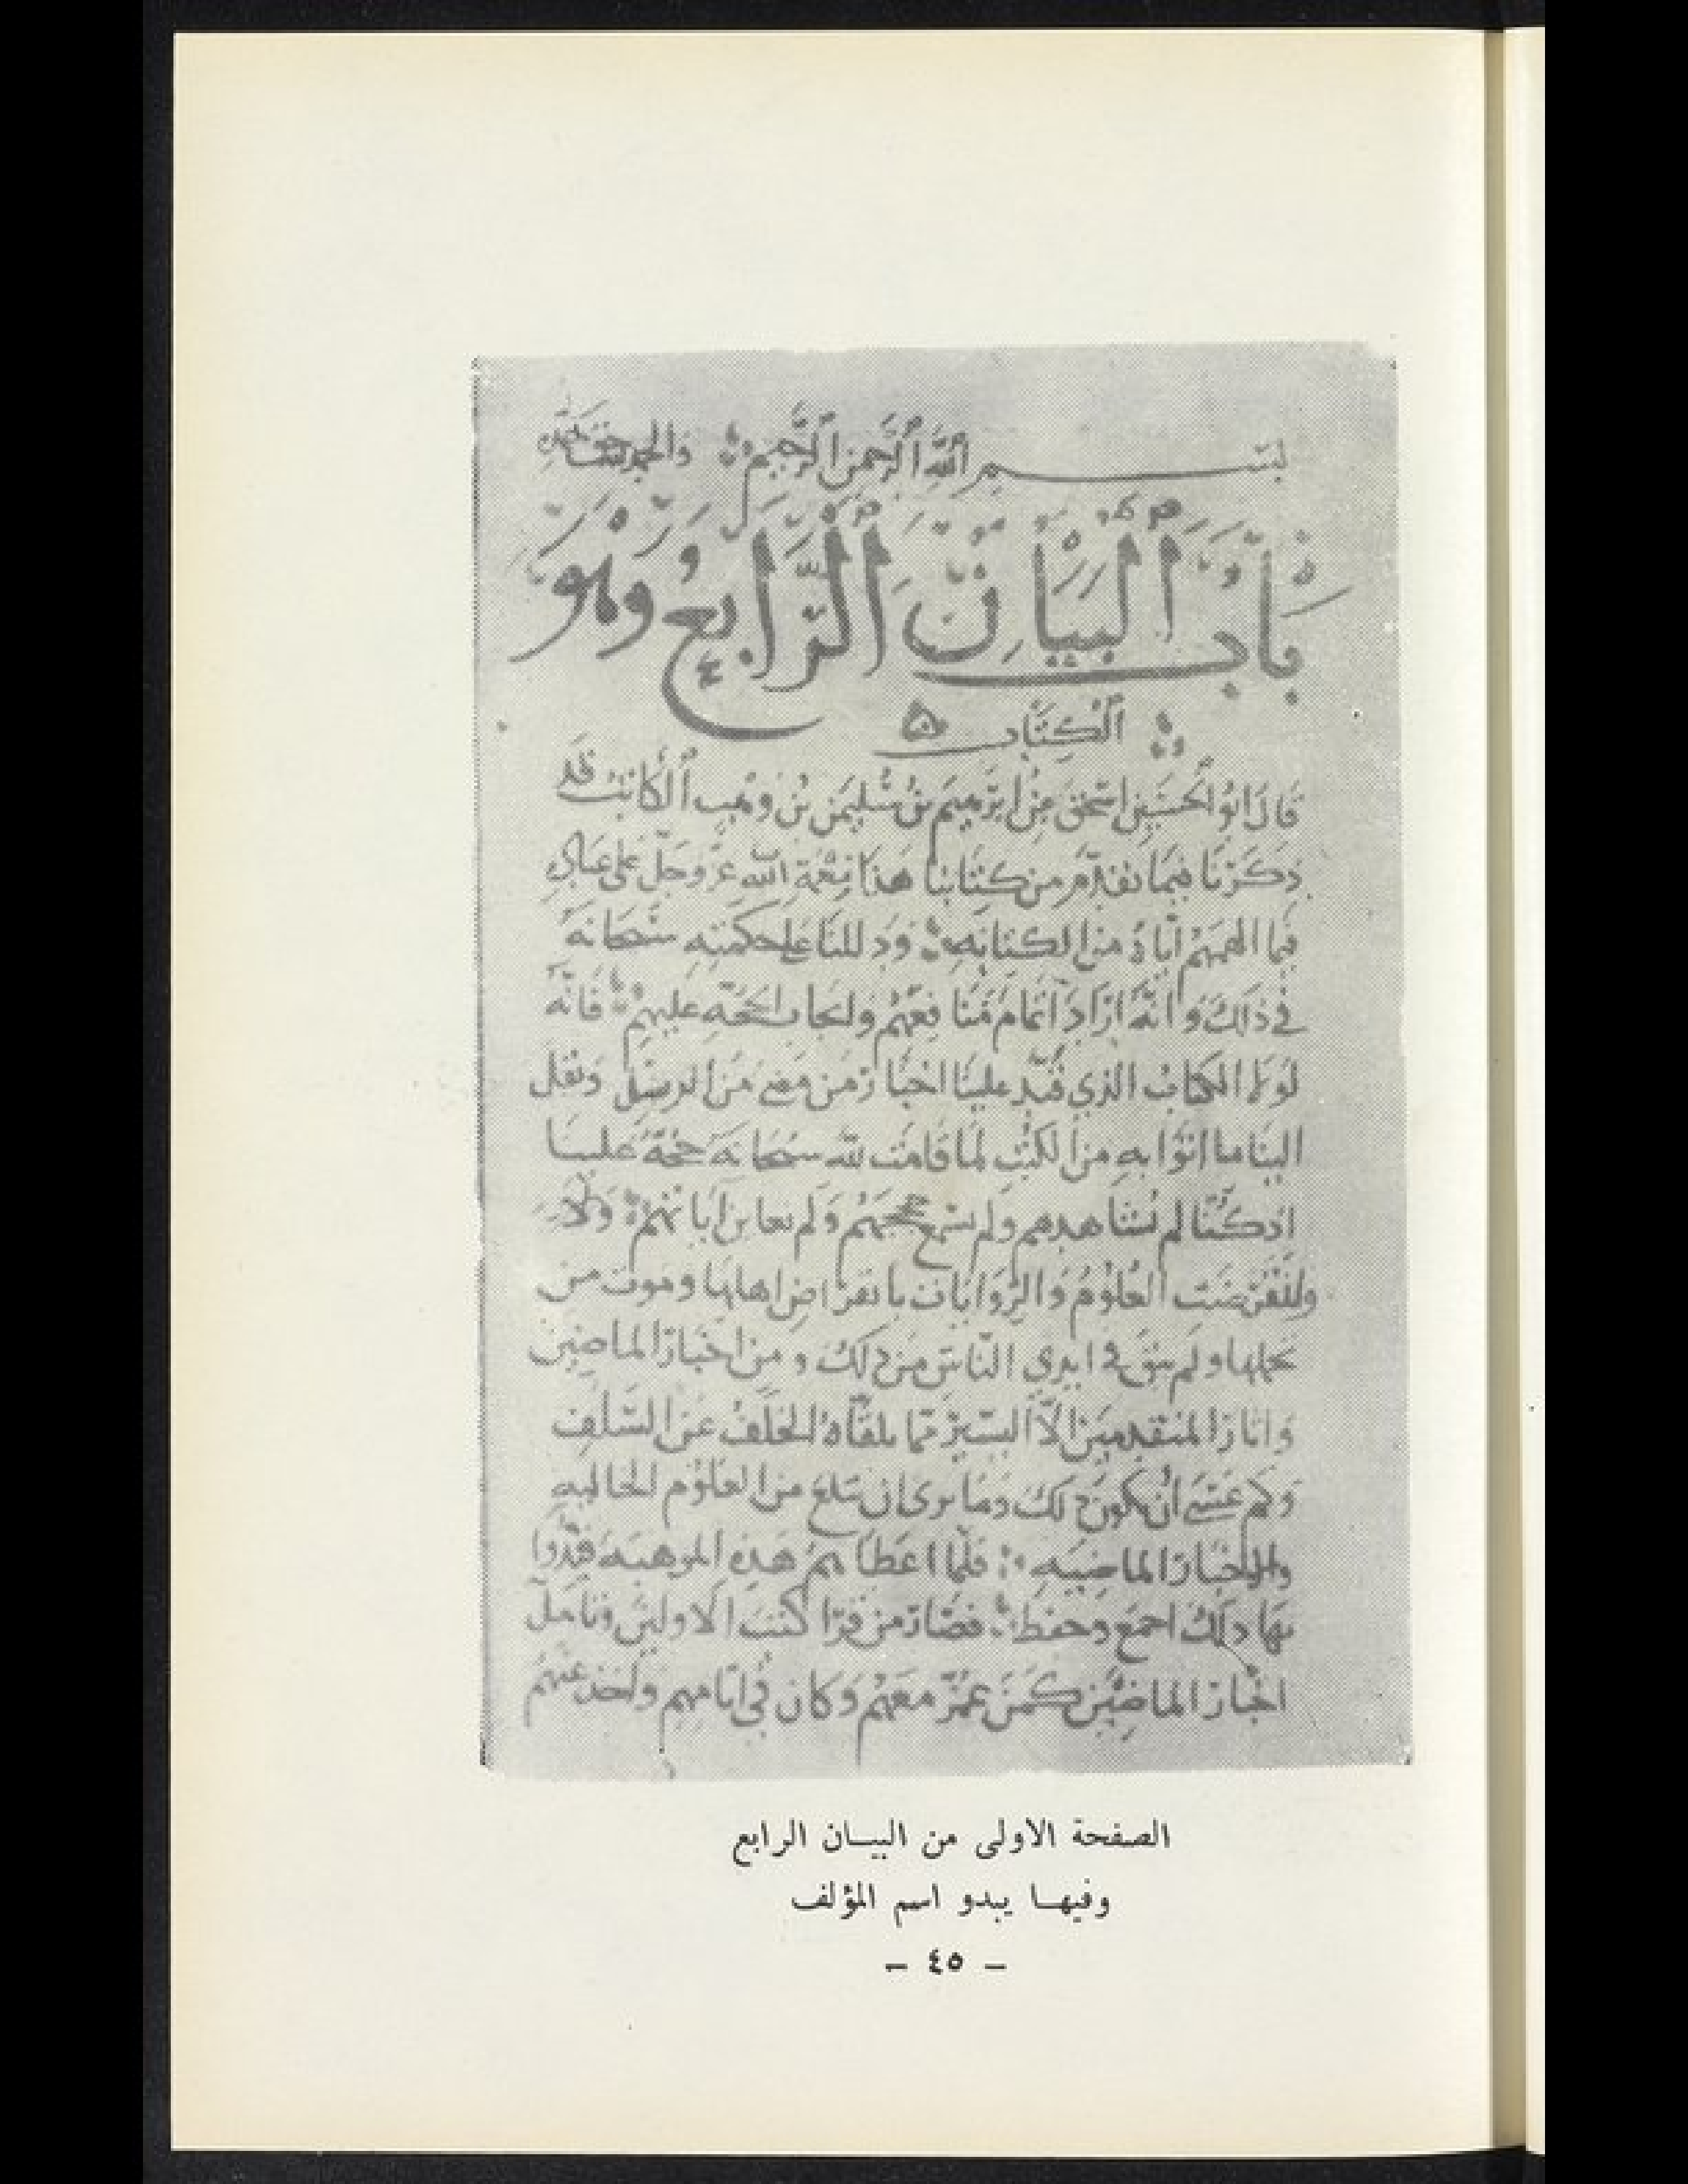 بسم الله الرحمن الرحيم والحمد لله
بَابُ اَلْبَيَانِ اَلرَّابِعُ وَهُوَ
اَلْكِتَابُ
قال ابو الحسين اسحق بن ابرهيم بن سليمن بن وهب الكاتب قد
ذكرنا فيما تقدم من كتابنا هذا نعمة الله عز وجل على عباده
فيما الهمهم اياه من الكتابه ودللنا على حكمته سبحانه
في ذلك وانه اراد اتمام منافعهم وايجاب الحجه عليهم فانه
لولا الكتاب الذي قيد علينا اخبار من مضى من الرسل ونقل
الينا ما اتوا به من الكتب لما قامت لله سبحانه حجة علينا
اذ كنا لم نشاهدهم ولم نسمع حججهم ولم نعاين اياتهم
العلوم والروايات بانقراض اهلها وموت من
تحملها ولم يبق في ايدي الناس من ذلك ومن اخبار الماضين
واثار المتقدمين الا اليسير مما يلقاه الخلف عن السلف
وكم عسى ان يكون ذلك وما يرى ان يبلغ من العلوم الخاليه
والاخبار الماضيه فلما اعطاهم هذه الموهبه قيدوا
بها ذلك اجمع وحفظ فصار من قرا كتب الاولين وتامل
اخبار الماضين كمن عمر معهم وكان في ايامهم واخذ عنهم
الصفحة الاولى من البيـان الرابع
وفيهـا يبدو اسم المؤلف
– ٤٥ –